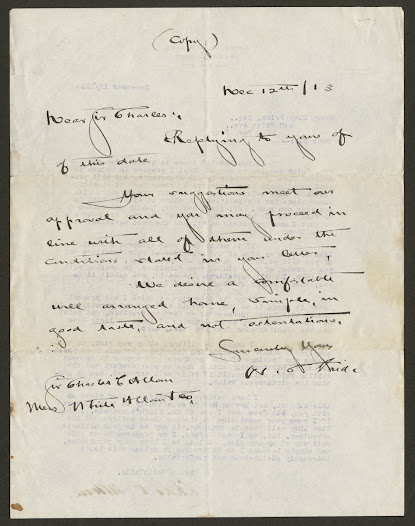 (Copy)
Dec 12th/13
Dear Sir Charles:,
Replying to yours of
of this date
Your suggestions meet our
approval and you may proceed in
line with all of them under the
conditions stated in your letter,
We desire a comfortable
well arranged home, simple, in
good taste, and not ostentatious.
Sincerely Yours
Sir Charles C Allom
Mess White Allom & Co,